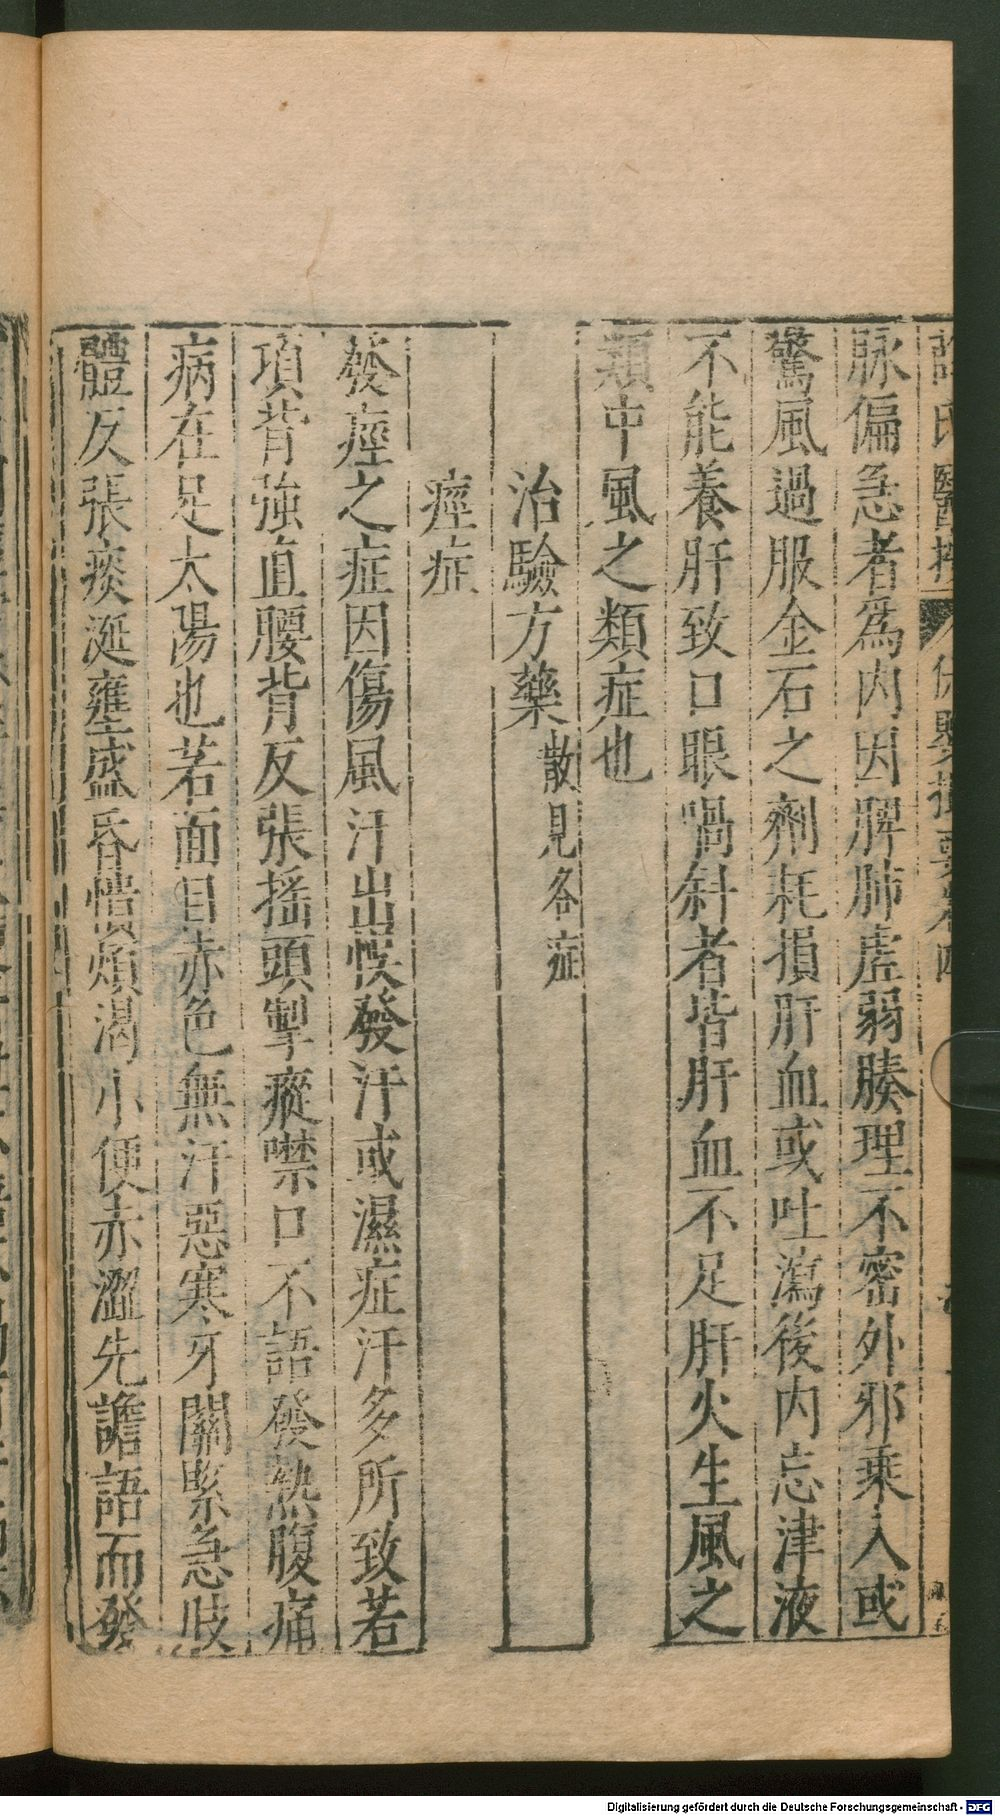 脉偏急者爲内因脾肺虗弱腠理不密外邪乗入或
驚風過服金石之劑耗損肝血或吐瀉後内忘津液
不能養肝致口眼喎斜者皆肝血不足肝火生風之
類中風之類症也
治驗方藥散見各症
痙症
發痙之症因傷風汗出悞發汗或濕症汗多所致若
項背強直腰背反張揺頭掣瘲噤口不語發熱腹痛
病在足太陽也若面目赤色無汗惡寒牙關緊急肢
體反張痰涎壅盛昏憒煩渴小便赤澀先譫語而發
Digitalisierung gefördert durch die Deutsche Forschungsgemeinschaft - DFG